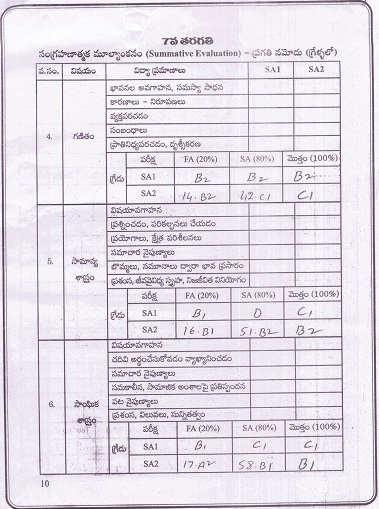 7వ తరగతి
సంగ్రహణాత్మక మూల్యాంకనం (Summative Evaluation) – ప్రగతి నమోదు (గ్రేళ్ళలో)
వ.సం. విషయం విద్యా ప్రమాణాలు SA1 SA2
భావనల అవగాహన, సమస్యా సాధన
కారణాలు – నిరూపణలు
వ్యక్తపరచడం
సంబంధాలు
ప్రాతినిధ్యపరచడం, దృశ్యీకరణ
4. గణితం
గ్రేడు పరీక్ష FA (20%) SA (80%) మొత్తం (100%)
SA1 B2 B2 B2
SA2 14.B2 42.C1 C1
విషయావగాహన
ప్రశ్నించడం, పరికల్పనలు చేయడం
ప్రయోగాలు, క్షేత్ర పరిశీలనలు
సమాచార నైపుణ్యాలు
బొమ్మలు, నమూనాల ద్వారా భావ ప్రసారం
ప్రశంస, జీవవైవిధ్య స్పృహ, నిజజీవిత వినియోగం
5. సామాన్య శాస్త్రం
గ్రేడు పరీక్ష FA (20%) SA (80%) మొత్తం (100%)
SA1 B1 D C1
SA2 16.B1 51.B2 B2
విషయావగాహన
చదివి అర్థంచేసుకోవడం వ్యాఖ్యానించడం
సమాచార నైపుణ్యాలు
సమకాలీన, సామాజిక అంశాలపై ప్రతిస్పందన
పట నైపుణ్యాలు
ప్రశంస, విలువలు, సున్నితత్వం
6. సాంఘిక శాస్త్రం
గ్రేడు పరీక్ష FA (20%) SA (80%) మొత్తం (100%)
SA1 B1 C1 C1
SA2 17.A2 58.B1 B1
10